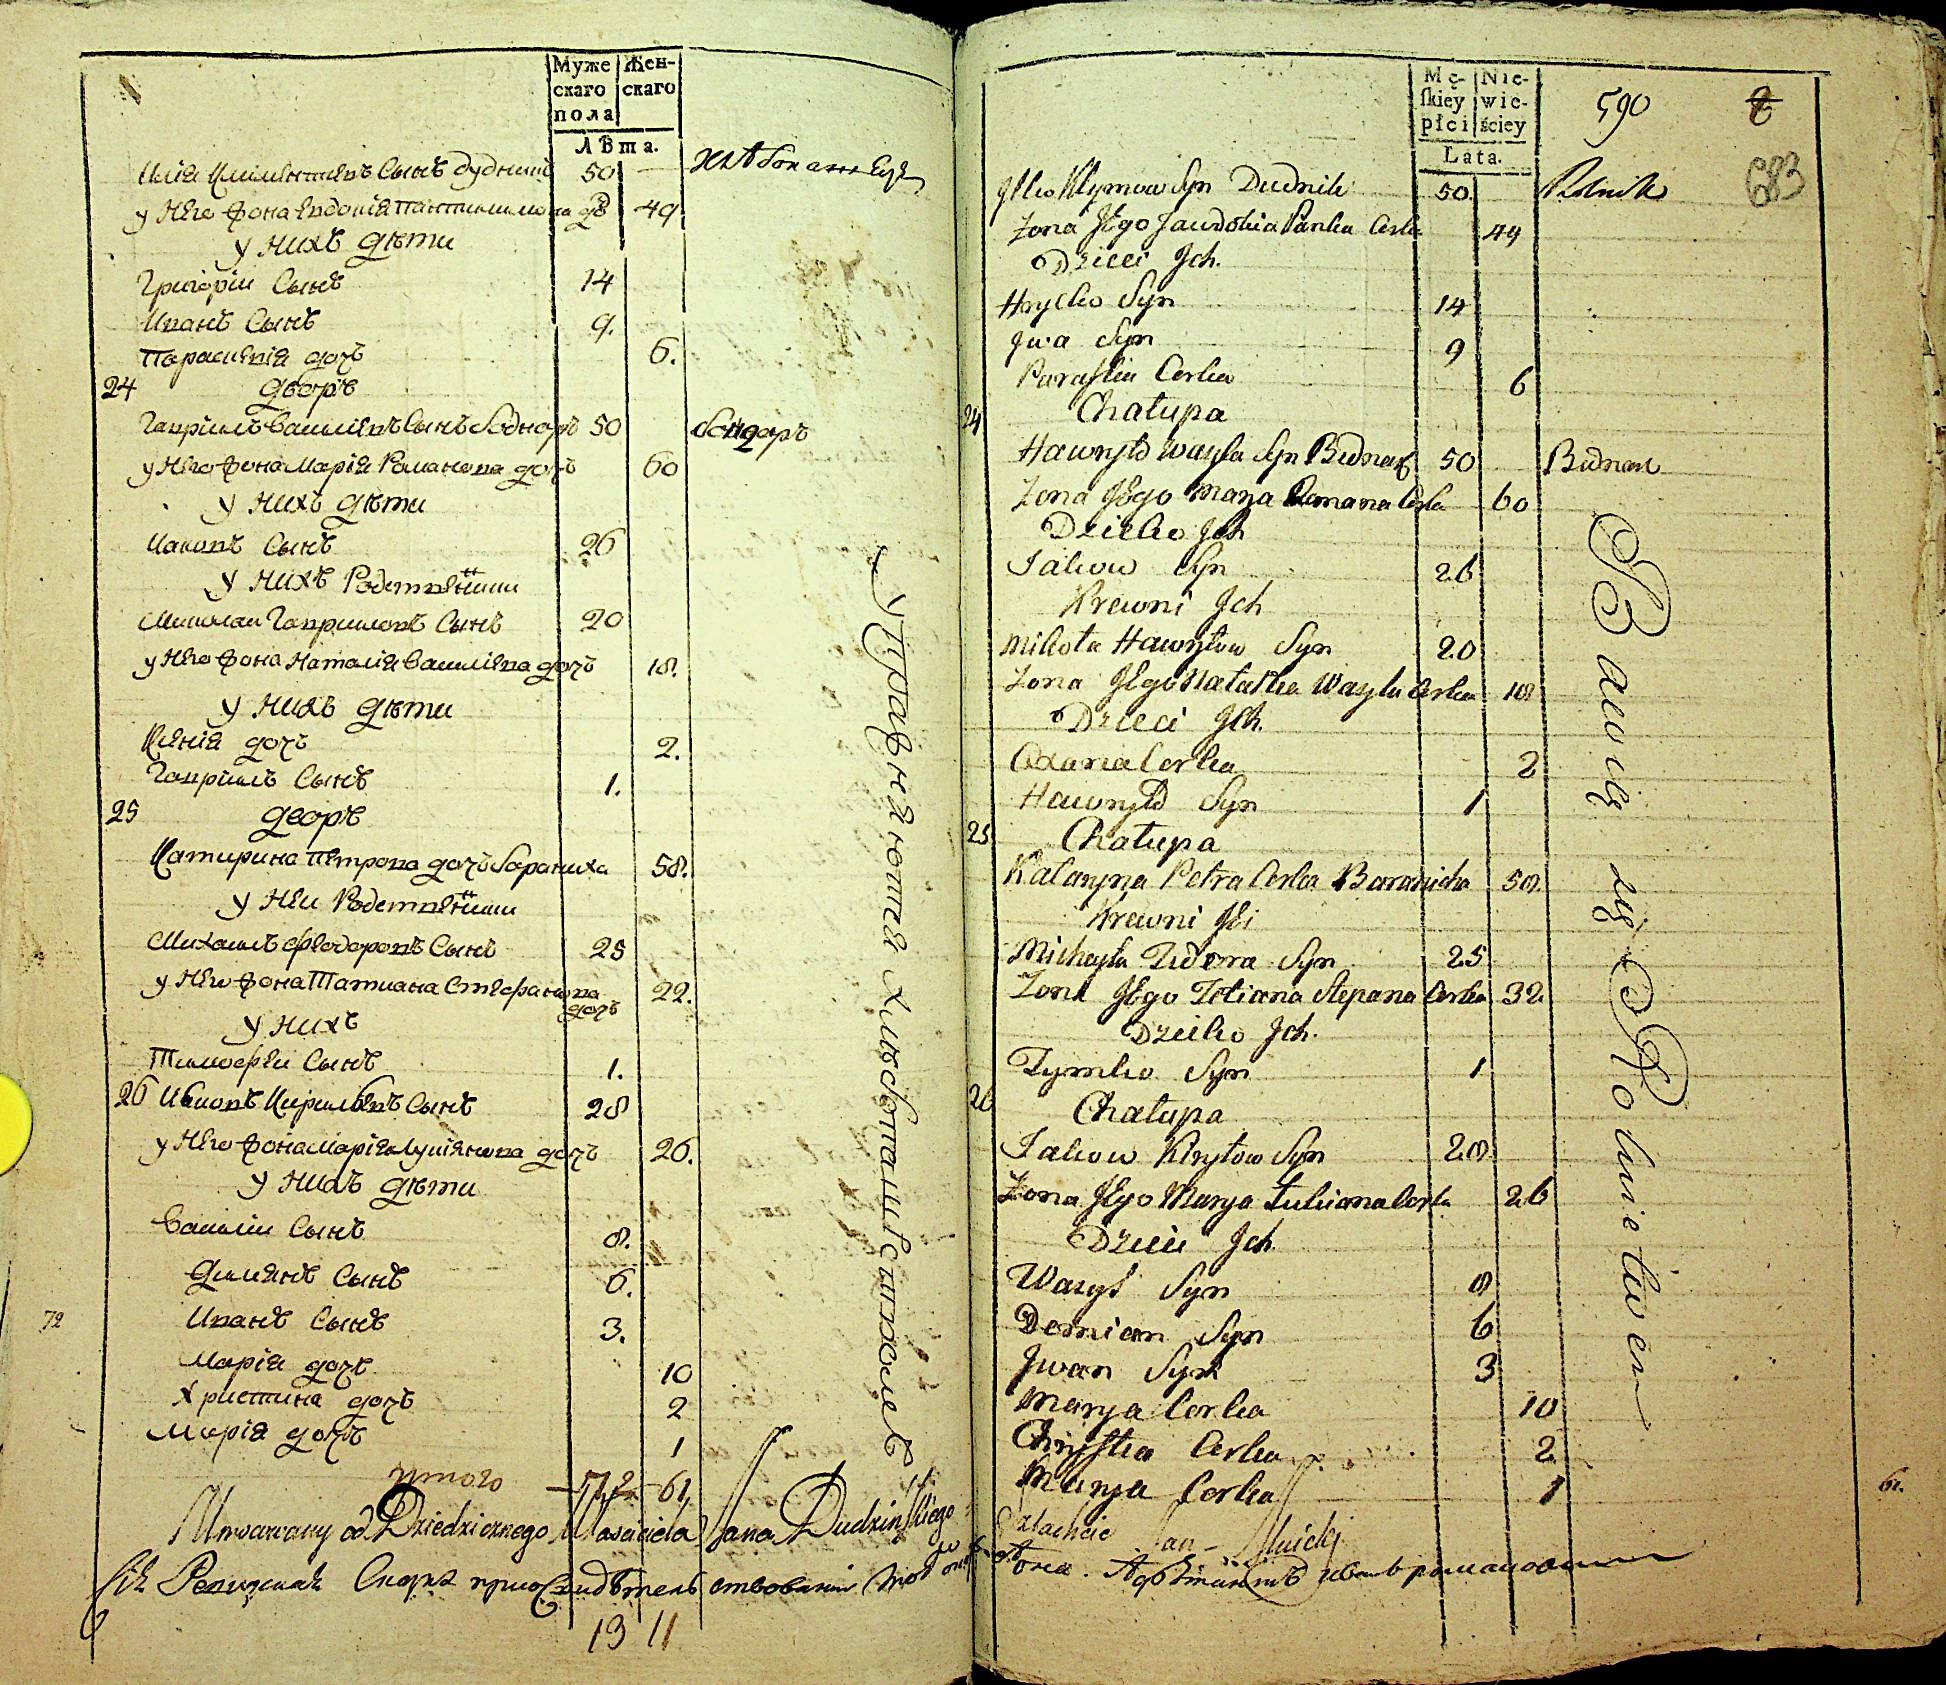 Муже Жен-
скаго скаго
пола
Лѣта.
Илія Климентіевъ Сынъ Дудникъ 50 — Хлѣбопашецъ
у Него Жона Евдокія Пантилимонова дочь 49
у Нихъ дѣти
Григорій Сынъ 14
Иванъ Сынъ 9.
Параскевія дочь 6.
24 Дворъ
Гавріилъ Василіевъ Сынъ Боднаръ 50 бондаръ
у Него Жона Марія Романова дочь 60
у Нихъ дѣти
Іаковъ Сынъ 26
у Нихъ Родственники
Николай Гавриловъ Сынъ 20
у Него Жона Наталія Василіева дочь 18.
у Нихъ дѣти
Ксенія дочь 2.
Гавріилъ Сынъ 1.
25 Дворъ
Катирина Петрова дочь Бараниха 58.
у Ней Родственники
Михаилъ Феодоровъ Сынъ 25
у Него Жона Татиана Стефанова дочь 22.
у Нихъ
Тимофей Сынъ 1.
26 Іаковъ Кириловъ Сынъ 28
у Него Жона Марія Лукіянова дочь 26.
у Нихъ дѣти
Василій Сынъ 8.
Даміянъ Сынъ 6.
Иванъ Сынъ 3.
72
Марія дочь 10
Христина дочь 2
Марія дочь 1
итого 61
Упражняются хлѣбопашествомъ
od Dziedzicznego Własciciela Jana Dudzinskiego
13 11
Mę- Nie-
skiey wie-
płci ściey
Lata.
590
683
Ilko Klymow Syn Dudnik 50 Rolnik
Zona Jego Jawdokia Pańka Corka 49
Dzieci Jch.
Hryćko Syn 14
Jwa Syn 9
Paraska Corka 6
24 Chałupa
Hawryło Wasyla Syn Bednarz 50 Bednarz
Zona Jego Marya Romana Corka 60
Dziecko Jch
Jakow Syn 26
Krewni Jch
Mikoła Hawryłow Syn 20
Zona Jego Natalka Wasyla Corka 18
Dzieci Jch.
Oxania Corka 2
Hawryło Syn 1
25 Chałupa
Kataryna Petra Corka Baranicha 58
Krewni Jei
Michayła Fedora Syn 25
Zona Jego Tetiana Stepana Corka 32
Dziecko Jch.
Tymko Syn 1
26 Chałupa
Jakow Kiryłow Syn 28
Zona Jego Marya Łukiana Corka 26
Dzieci Jch
Wasyl Syn 8
Domian Syn 6
Jwan Syn 3
Marya Corka 10
Chrystia Corka 2
Marya Corka 1
61.
Bawią się Rolnictwem
Szlachcic Jan